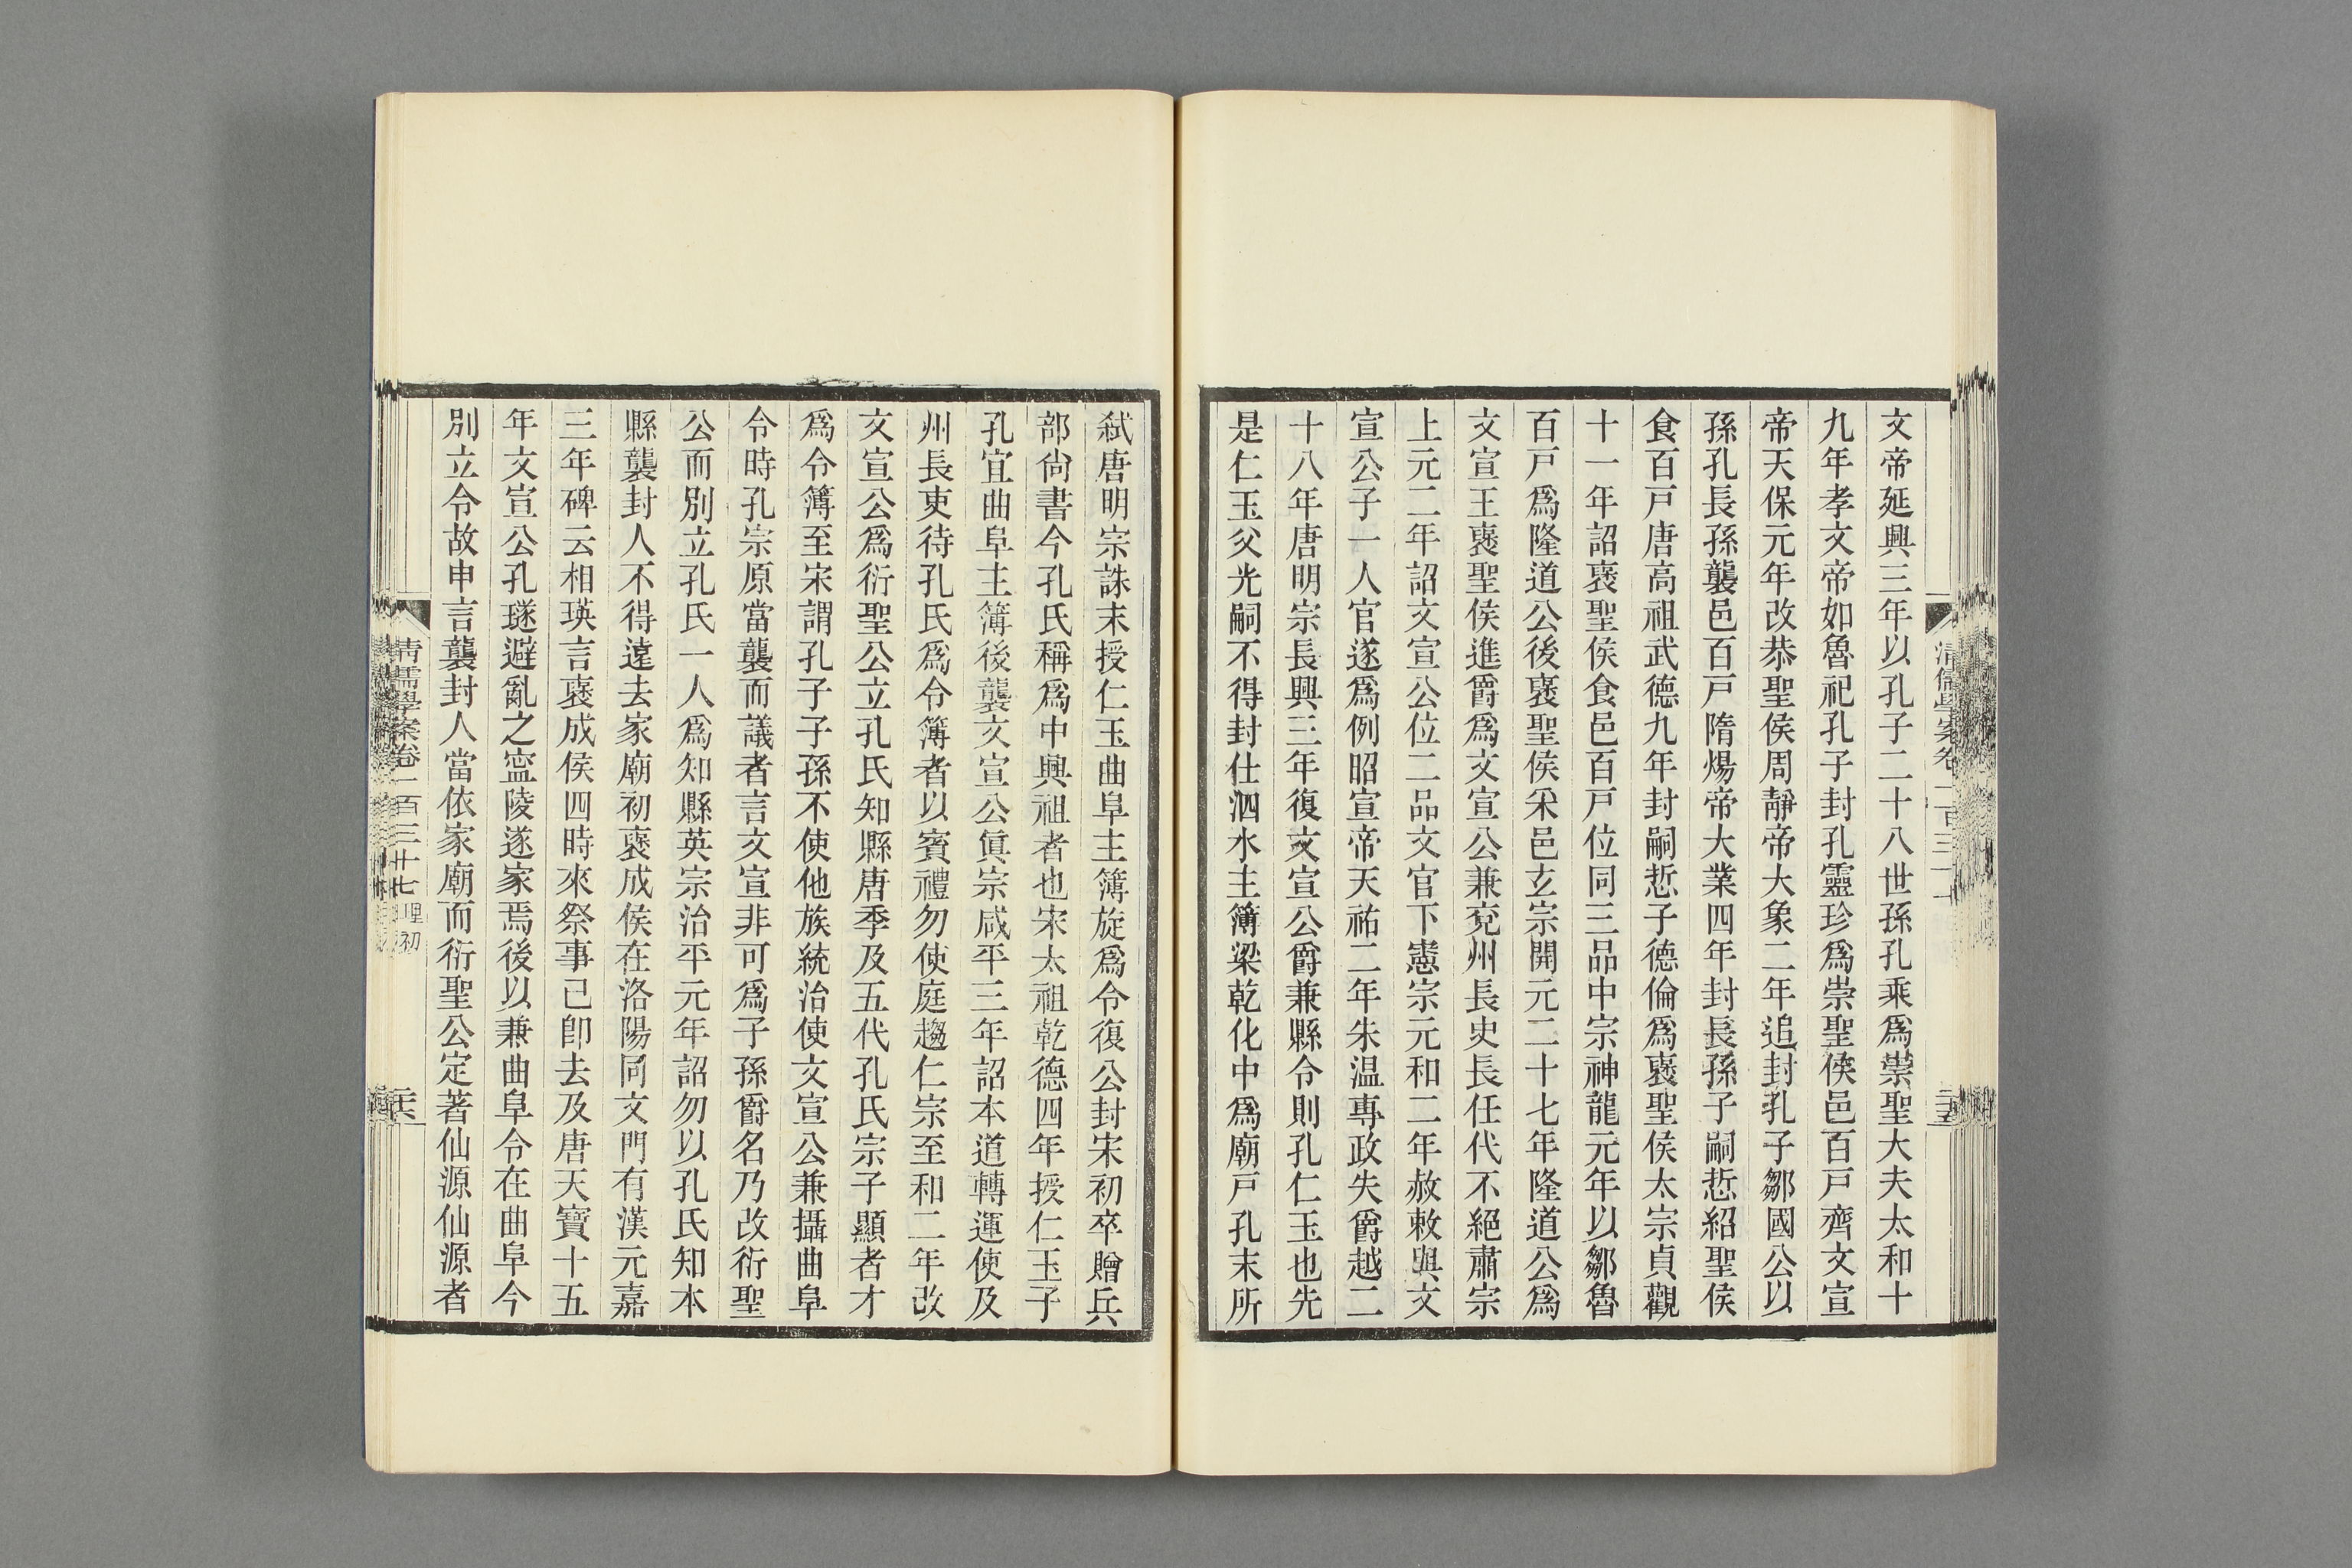 文帝延興三年以孔子二十八世孫孔乘爲崇聖大夫太和十
九年孝文帝如魯祀孔子封孔靈珍爲崇聖侯邑百戸齊文宣
帝天保元年改恭聖侯周靜帝大象二年追封孔子鄒國公以
孫孔長孫襲邑百戸隋煬帝大業四年封長孫子嗣悊紹聖侯
食百戸唐高祖武德九年封嗣悊子德倫爲褒聖侯太宗貞觀
十一年詔褒聖侯食邑百戸位同三品中宗神龍元年以鄒魯
百戸爲隆道公後褒聖侯采邑玄宗開元二十七年隆道公爲
文宣王褒聖侯進爵爲文宣公兼兗州長史長任代不絕肅宗
上元二年詔文宣公位二品文官下憲宗元和二年赦敕與文
宣公子一人官遂爲例昭宣帝天祐二年朱温專政失爵越二
十八年唐明宗長興三年復文宣公爵兼縣令則孔仁玉也先
是仁玉父光嗣不得封仕泗水主簿梁乾化中爲廟戸孔末所
弑唐明宗誅末授仁玉曲阜主簿旋爲令復公封宋初卒贈兵
部尙書今孔氏稱爲中興祖者也宋太祖乾德四年授仁玉子
孔宜曲阜主簿後襲文宣公眞宗咸平三年詔本道轉運使及
州長吏待孔氏爲令簿者以賓禮勿使庭趨仁宗至和二年改
文宣公爲衍聖公立孔氏知縣唐季及五代孔氏宗子顯者才
爲令簿至宋謂孔子子孫不使他族統治使文宣公兼攝曲阜
令時孔宗原當襲而議者言文宣非可爲子孫爵名乃改衍聖
公而別立孔氏一人爲知縣英宗治平元年詔勿以孔氏知本
縣襲封人不得遠去家廟初褒成侯在洛陽同文門有漢元嘉
三年碑云相瑛言褒成侯四時來祭事已卽去及唐天寶十五
年文宣公孔璲避亂之寍陵遂家焉後以兼曲阜令在曲阜今
別立令故申言襲封人當依家廟而衍聖公定著仙源仙源者
清儒學案卷一百三十七 理初